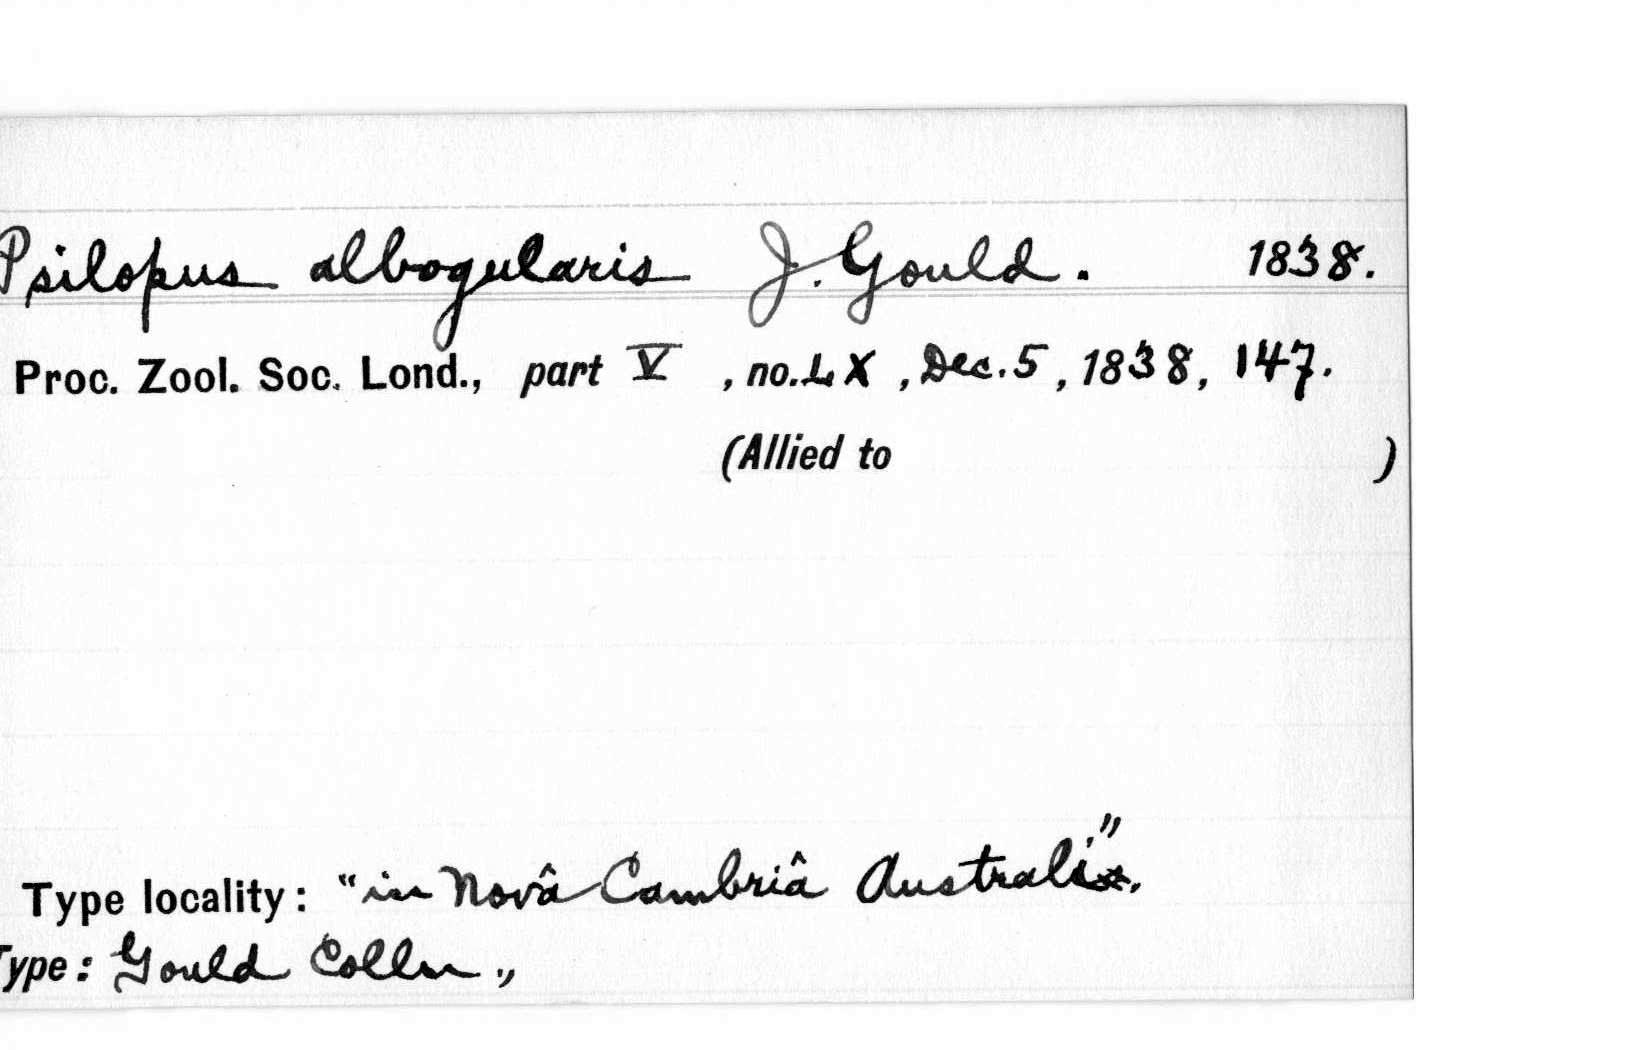 Psilopus albogularis J. Gould. 1838.
Proc. Zool. Soc. Lond., part V, no. LX, Dec. 5, 1838, 147.
(Allied to )
Type locality: "in Novâ Cambriâ Australi".
Type: Gould Colln.,